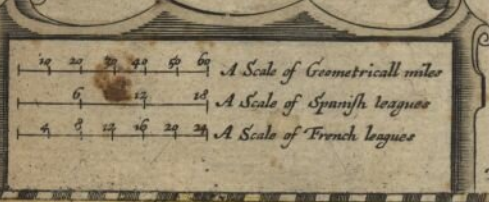 10 20 30 40 50 60 A Scale of Geometricall miles
6 12 18 A Scale of Spanish leagues
4 8 12 16 20 24 A Scale of French leagues